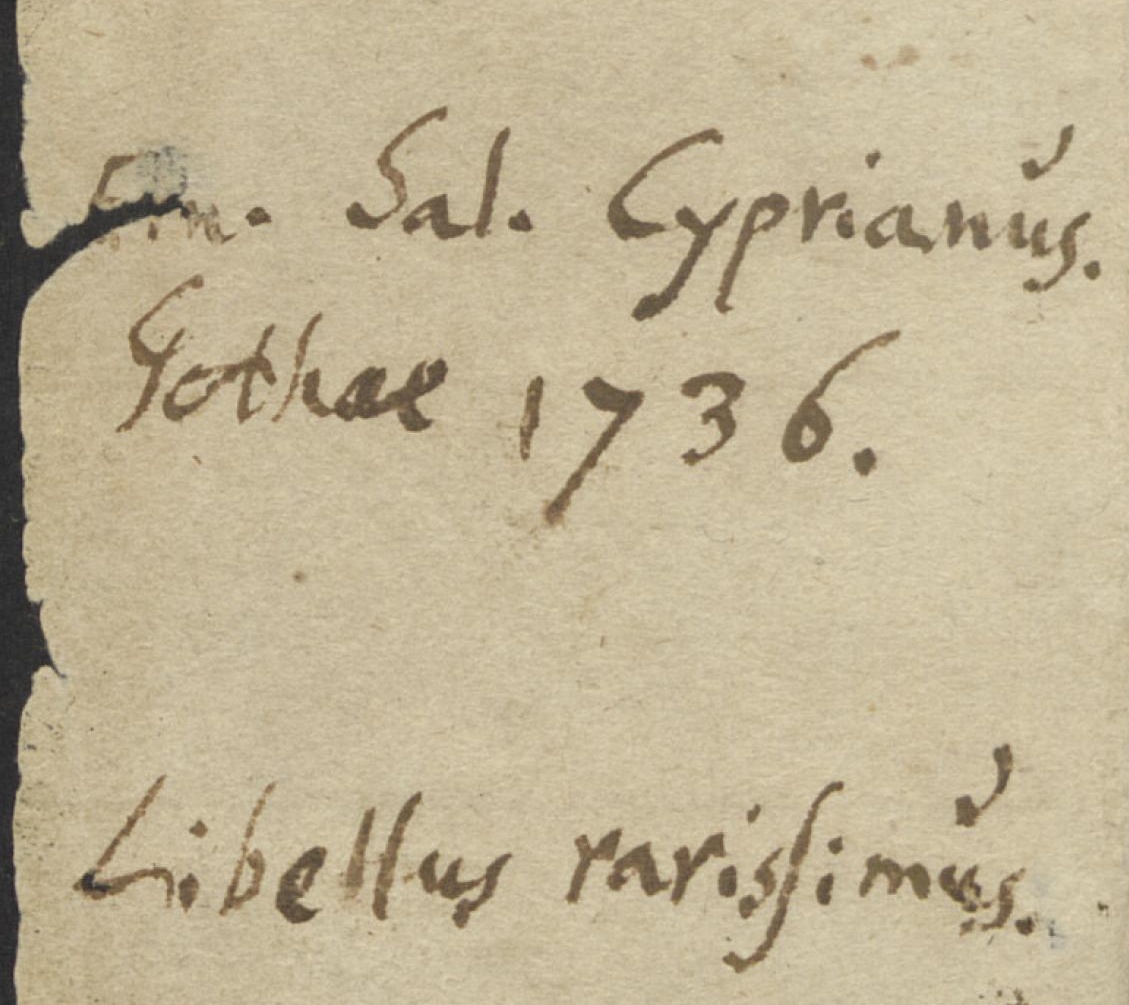 Ern. Sal. Cyprianus.
Gothae 1736.
Libellus rarissimus.